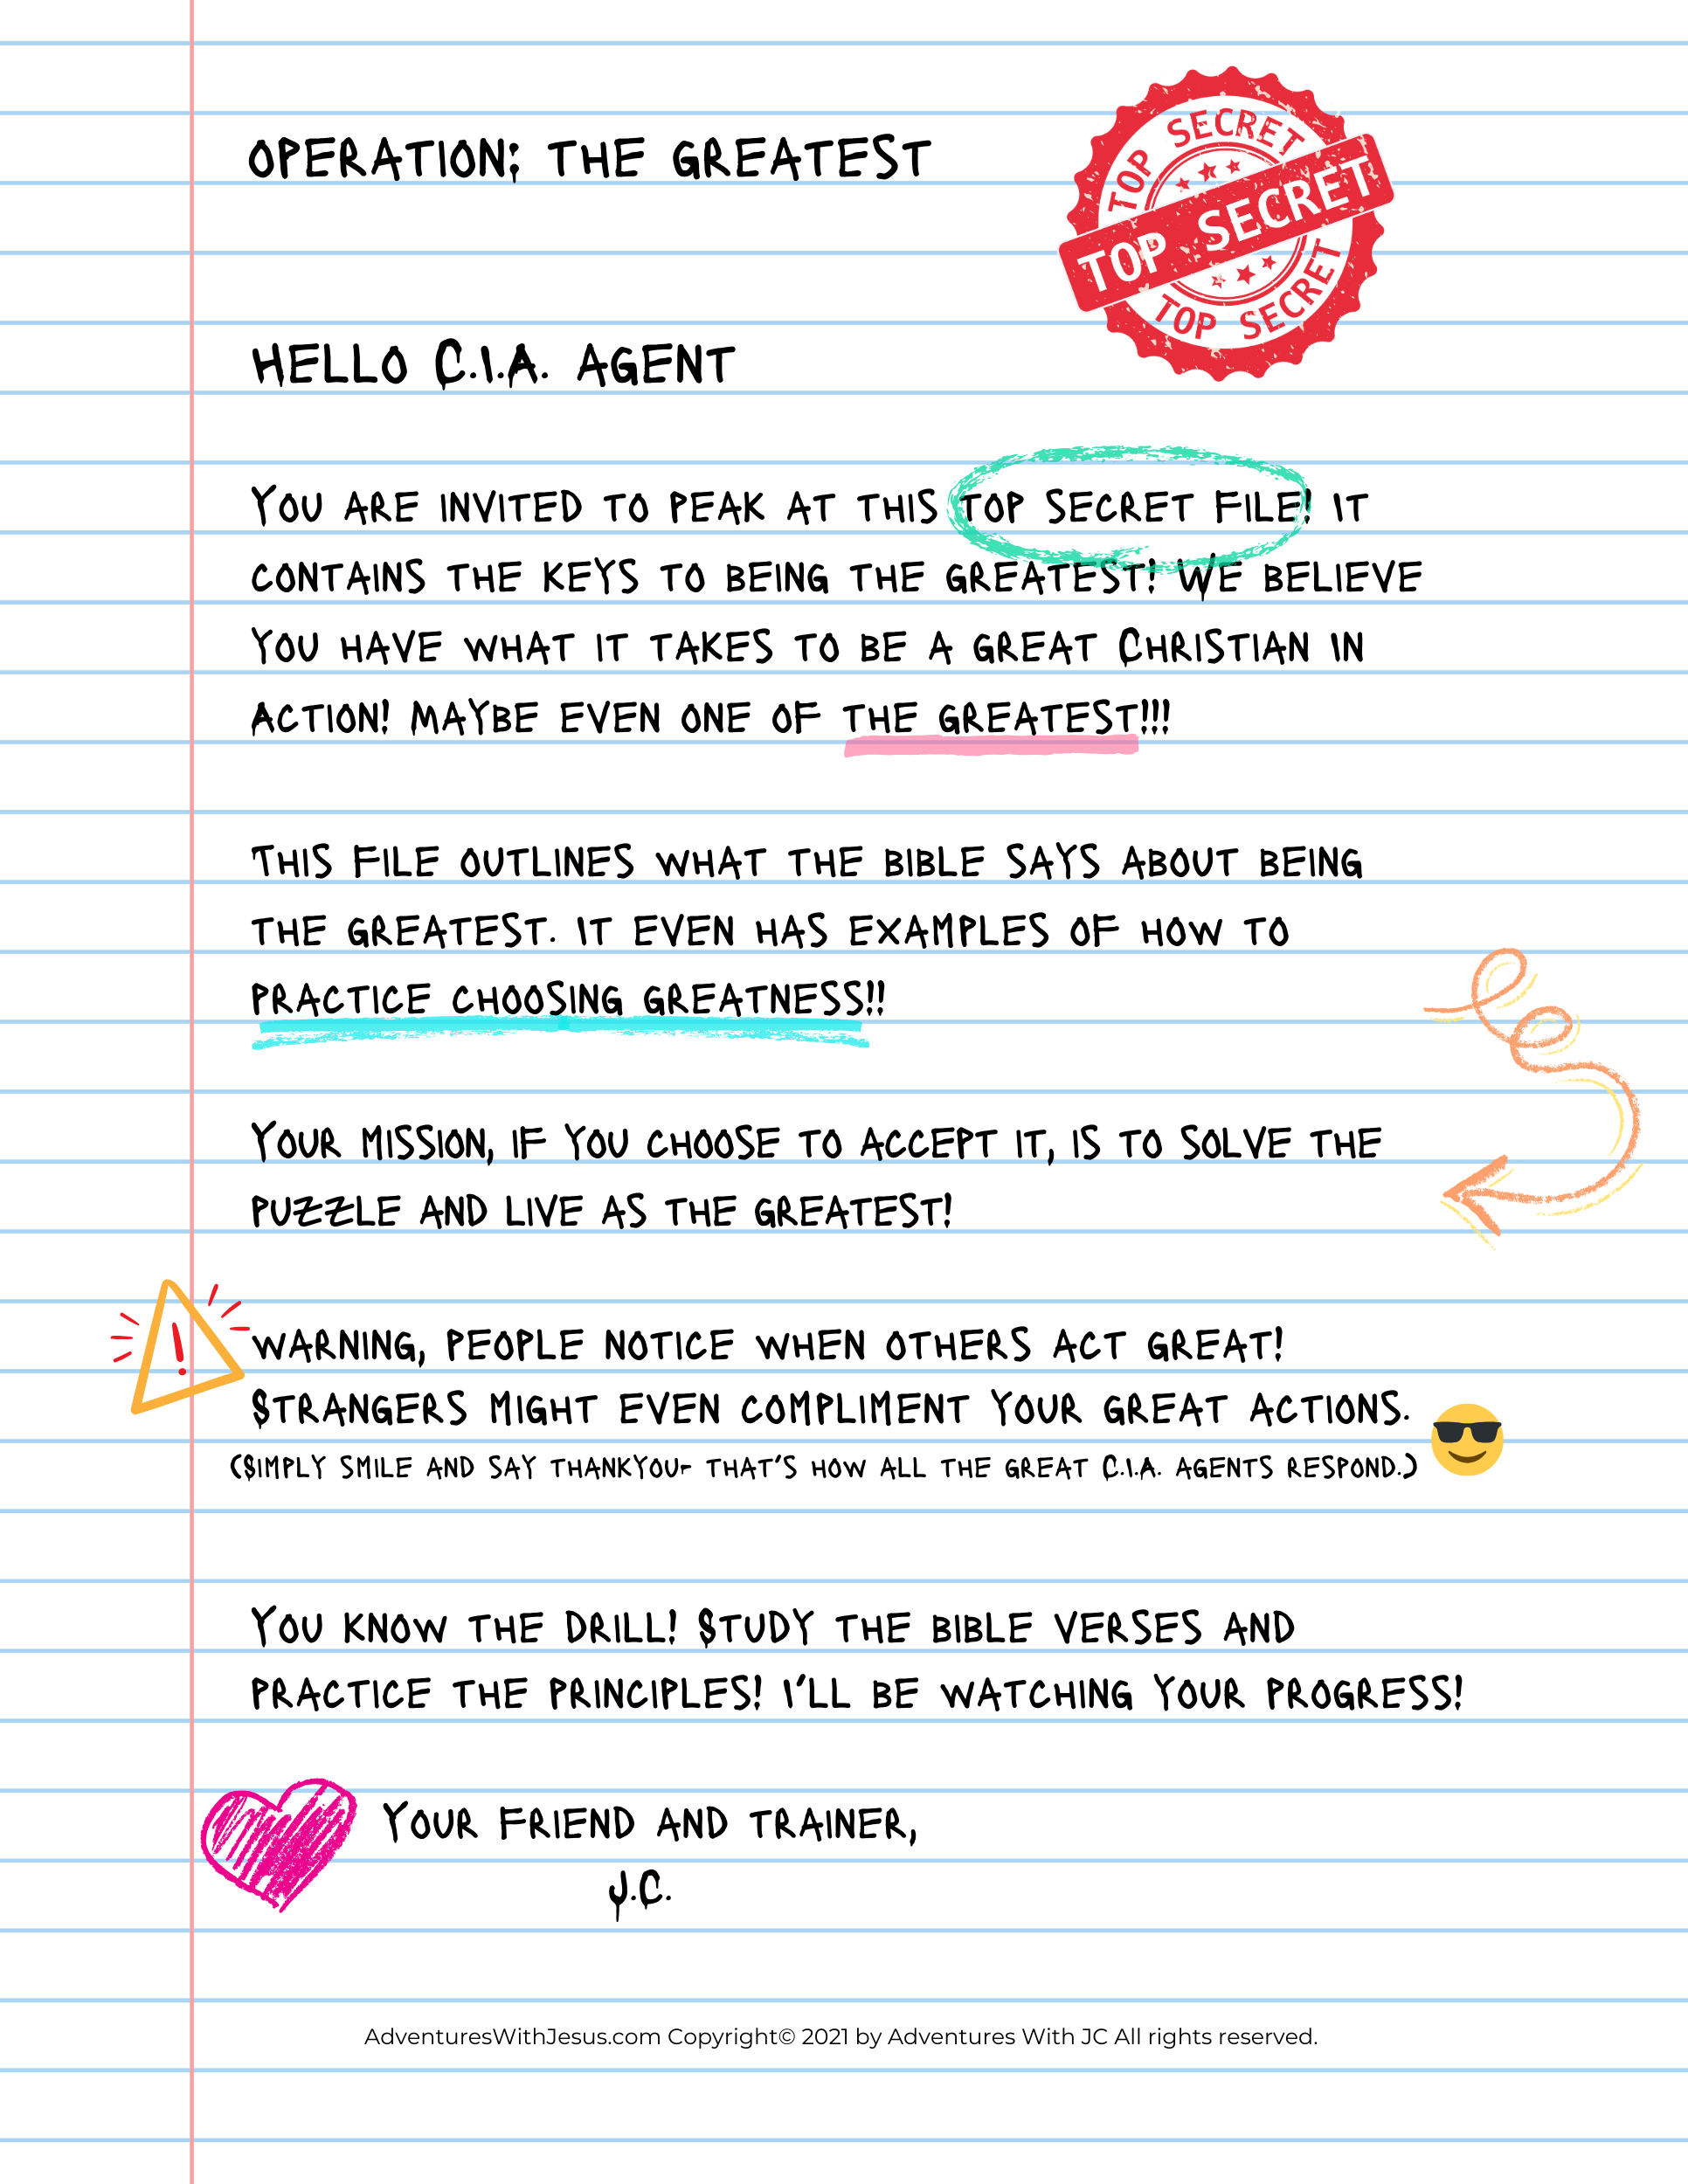 OPERATION: THE GREATEST
TOP SECRET
TOP SECRET
TOP SECRET
HELLO C.I.A. AGENT
YOU ARE INVITED TO PEAK AT THIS TOP SECRET FILE! IT
CONTAINS THE KEYS TO BEING THE GREATEST! WE BELIEVE
YOU HAVE WHAT IT TAKES TO BE A GREAT CHRISTIAN IN
ACTION! MAYBE EVEN ONE OF THE GREATEST!!!
THIS FILE OUTLINES WHAT THE BIBLE SAYS ABOUT BEING
THE GREATEST. IT EVEN HAS EXAMPLES OF HOW TO
PRACTICE CHOOSING GREATNESS!!
YOUR MISSION, IF YOU CHOOSE TO ACCEPT IT, IS TO SOLVE THE
PUZZLE AND LIVE AS THE GREATEST!
WARNING, PEOPLE NOTICE WHEN OTHERS ACT GREAT!
STRANGERS MIGHT EVEN COMPLIMENT YOUR GREAT ACTIONS.
(SIMPLY SMILE AND SAY THANKYOU- THAT'S HOW ALL THE GREAT C.I.A. AGENTS RESPOND.)
YOU KNOW THE DRILL! STUDY THE BIBLE VERSES AND
PRACTICE THE PRINCIPLES! I'LL BE WATCHING YOUR PROGRESS!
YOUR FRIEND AND TRAINER,
J.C.
AdventuresWithJesus.com Copyright© 2021 by Adventures With JC All rights reserved.